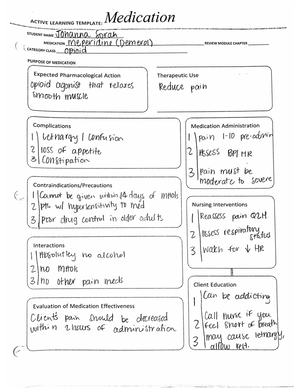 ACTIVE LEARNING TEMPLATE: Medication
STUDENT NAME Johanna Sorah
MEDICATION Meperidine (Demerol) REVIEW MODULE CHAPTER
CATEGORY CLASS opioid
PURPOSE OF MEDICATION
Expected Pharmacological Action
opioid agonist that relaxes
smooth muscle
Therapeutic Use
Reduce pain
Complications
1 Lethargy / confusion
2 loss of appetite
3 Constipation
Medication Administration
1 pain 1-10 pre-admin
2 Assess BP/HR
3 pain must be
moderate to severe
Contraindications/Precautions
1 Cannot be given within 14 days of MAOIs
2 pts w/ hypersensitivity to med
3 poor drug control in older adults
Nursing Interventions
1 Reassess pain Q2H
2 Assess respiratory
status
3 Watch for ↓ HR
Interactions
1 Absolutely no alcohol
2 no MAOIs
3 no other pain meds
Client Education
1 Can be addicting
2 Call nurse if you
feel short of breath
3 may cause lethargy,
allow rest.
Evaluation of Medication Effectiveness
Clients pain should be decreased
within 2 hours of administration